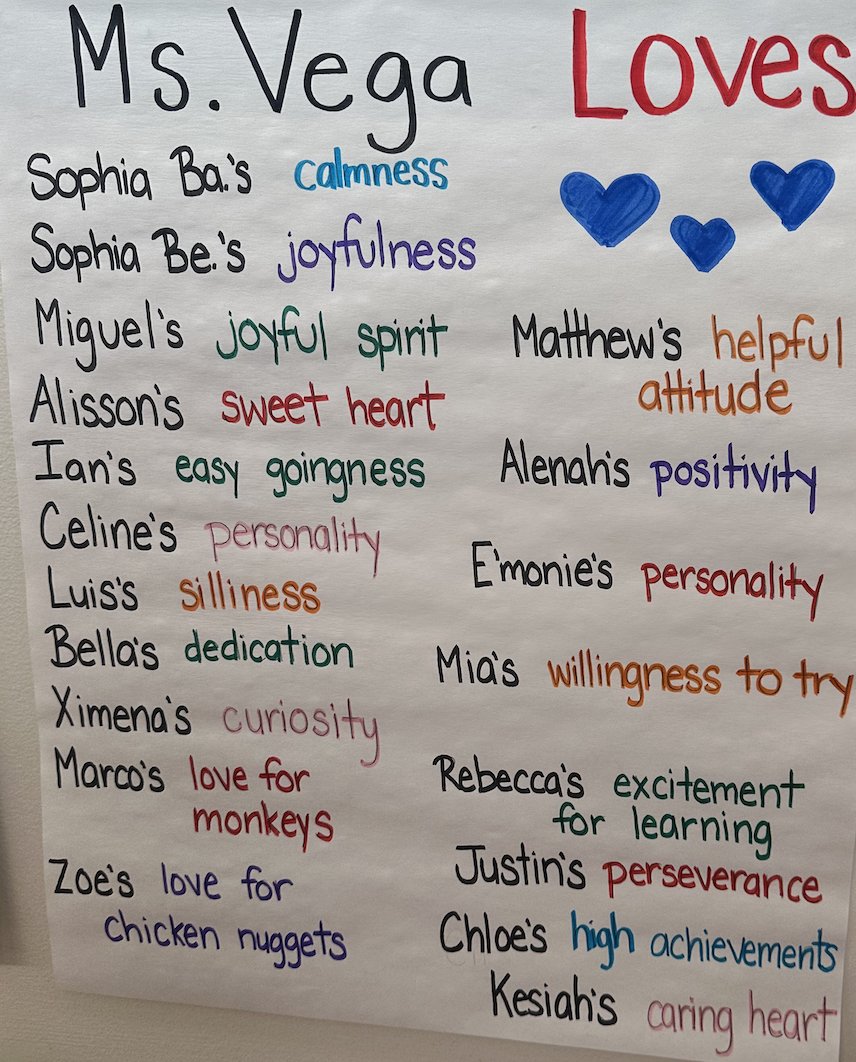 Ms. Vega Loves
Sophia Ba.'s calmness
Sophia Be.'s joyfulness
Miguel's joyful spirit
Alisson's sweet heart
Ian's easy goingness
Celine's personality
Luis's silliness
Bella's dedication
Ximena's curiosity
Marco's love for
monkeys
Zoe's love for
chicken nuggets
Matthew's helpful
attitude
Alenah's positivity
E'monie's personality
Mia's willingness to try
Rebecca's excitement
for learning
Justin's perseverance
Chloe's high achievements
Kesiah's caring heart